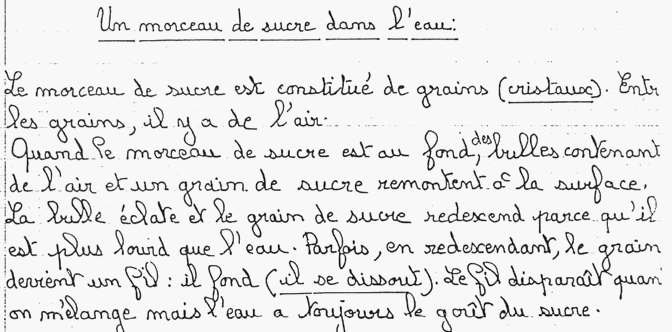 Un morceau de sucre dans l'eau:
Le morceau de sucre est constitué de grains (cristaux). Entr
les grains, il y a de l'air.
Quand le morceau de sucre est au fond, des bulles contenant
de l'air et un grain de sucre remontent à la surface.
La bulle éclate et le grain de sucre redescend parce qu'il
est plus lourd que l'eau. Parfois, en redescendant, le grain
devient un fil : il fond (il se dissout). Le fil disparaît quan
on mélange mais l'eau a toujours le goût du sucre.